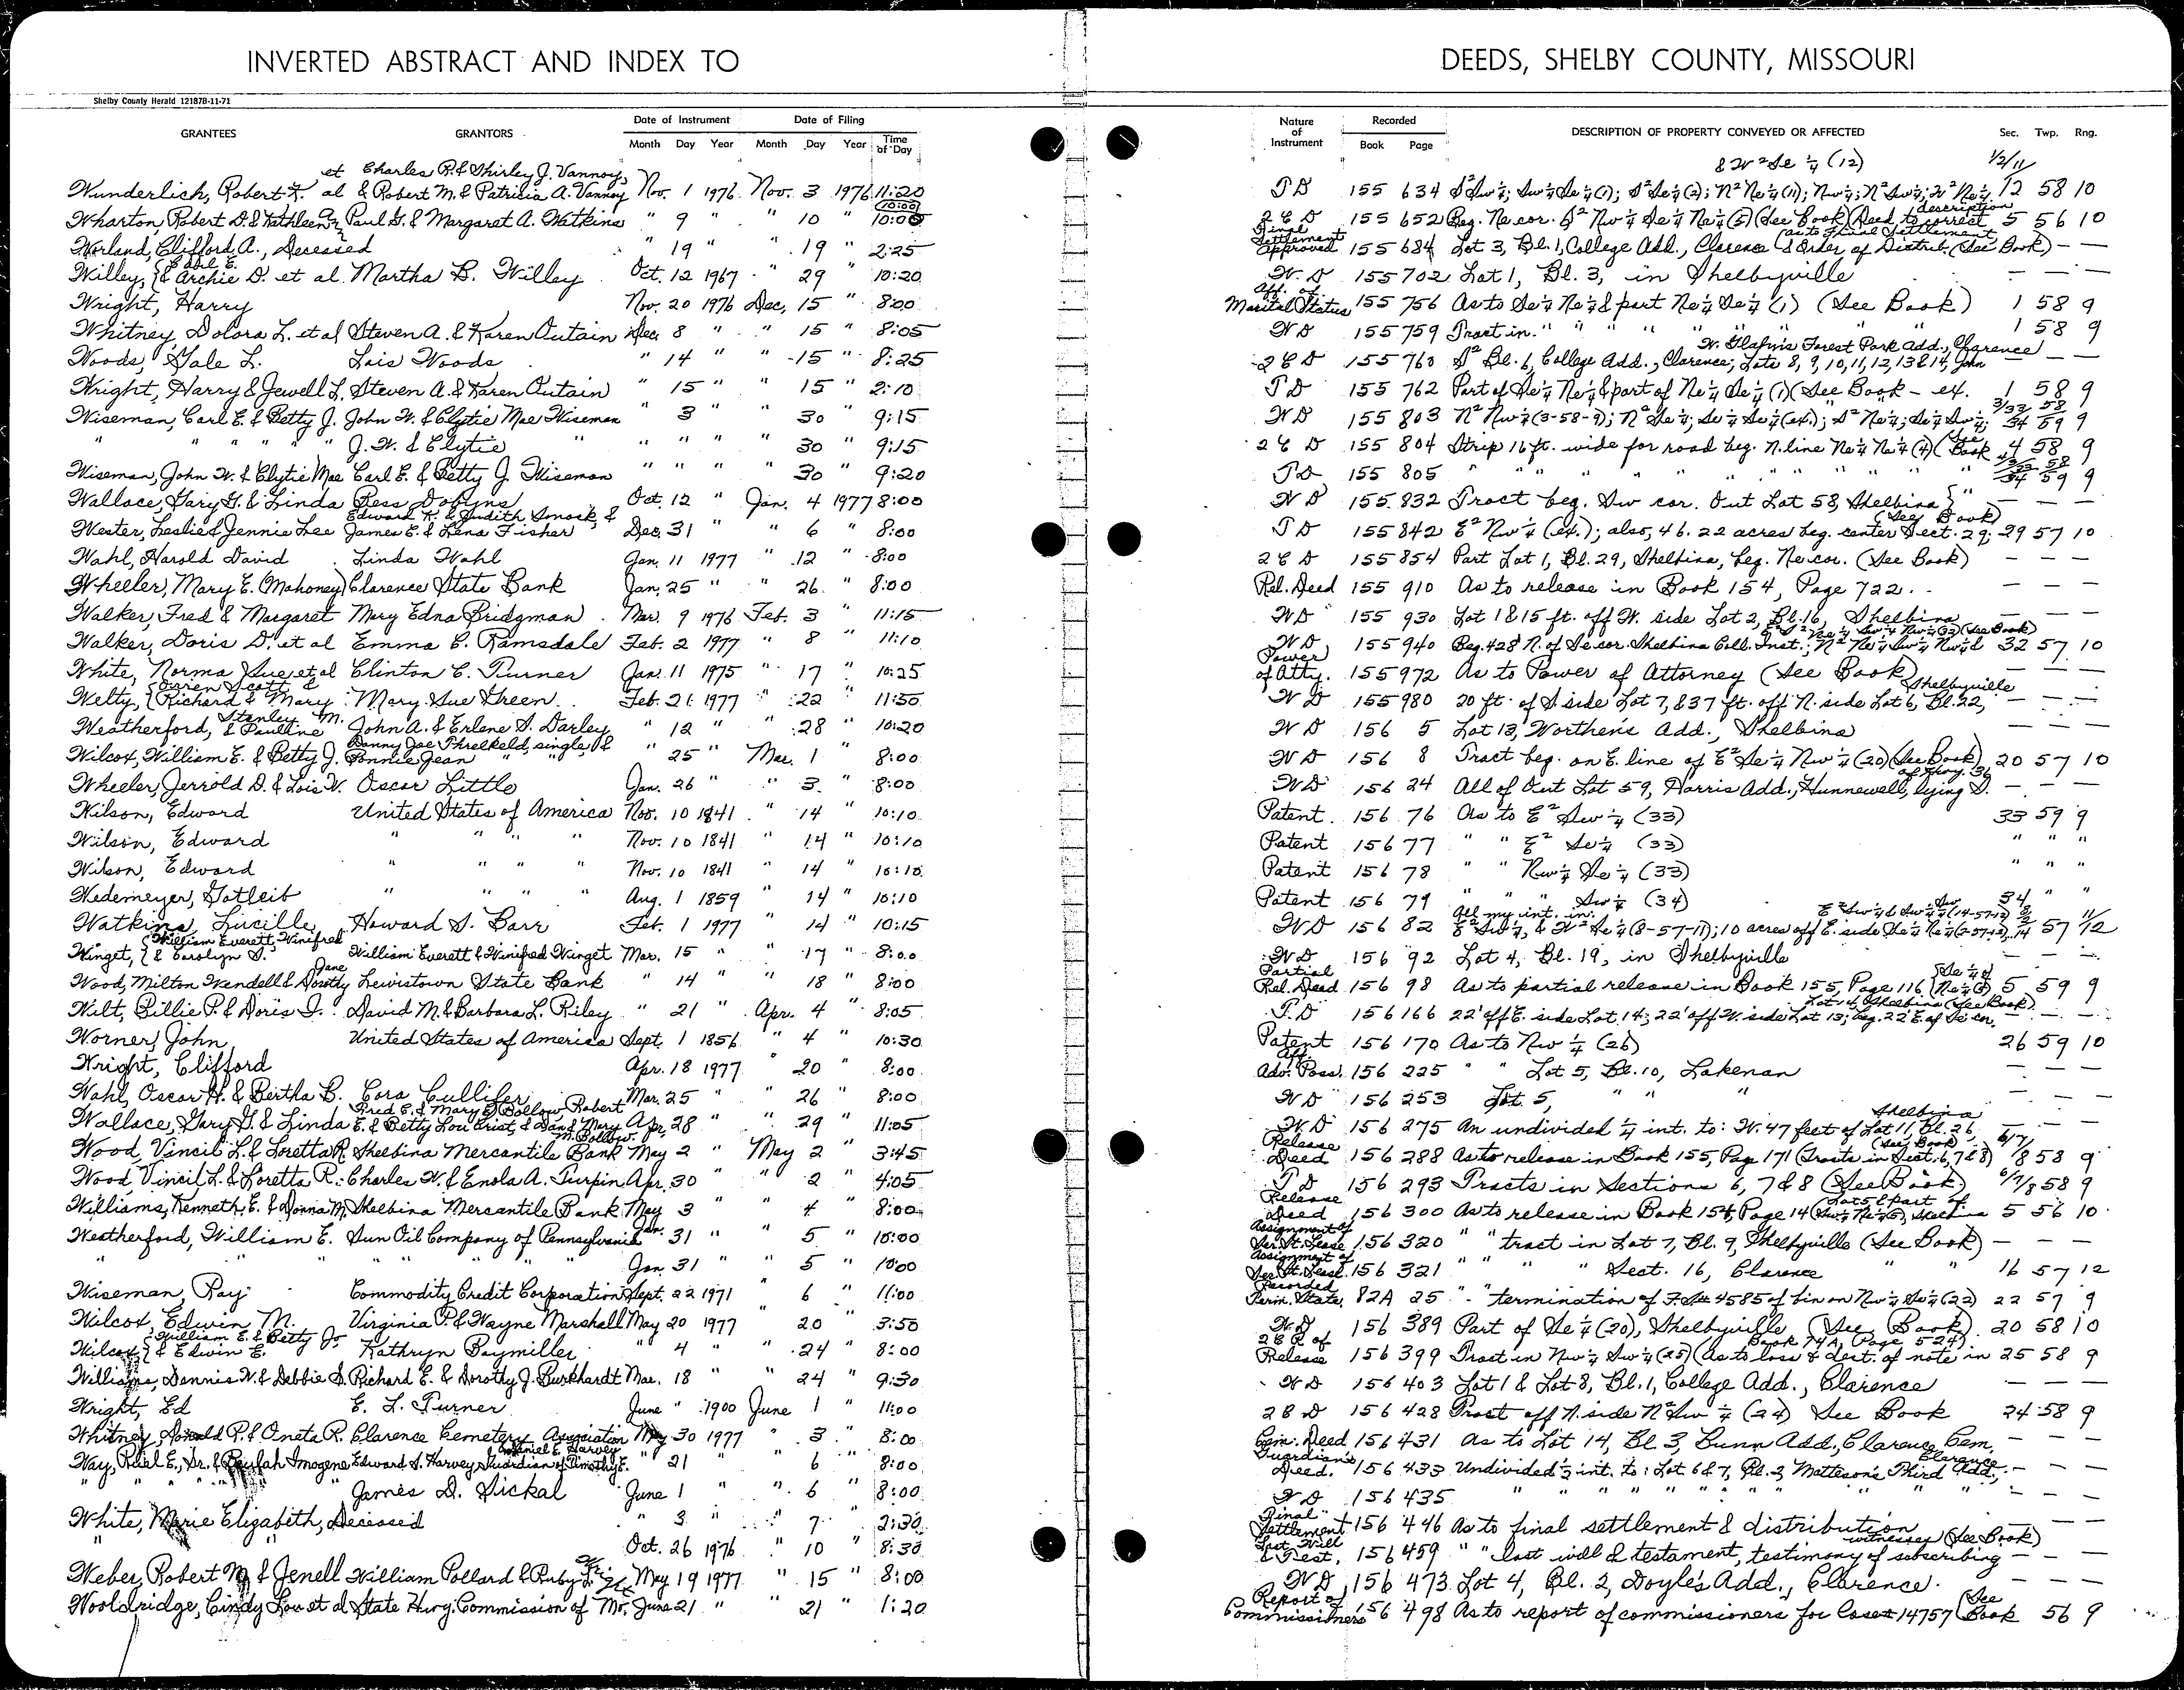 INVERTED ABSTRACT AND INDEX TO DEEDS, SHELBY COUNTY, MISSOURI
Shelby County Herald 12187B-11-71
GRANTEES GRANTORS Date of Instrument Month Day Year Date of Filing Month Day Year Time of Day Nature of Instrument Recorded Book Page DESCRIPTION OF PROPERTY CONVEYED OR AFFECTED Sec. Twp. Rng.
et Charles R. & Shirley J. Vannoy, & W²Se¼(12) 1/2/11/
Wunderlich, Robert F. al & Robert M. & Patricia A. Vannoy Nov. 1 1976 Nov. 3 1976 11:20 TD 155 634 S²Sw¼; Sw¼Se¼(1); S²Se¼(2); N²Ne¼(11); Nw¼; N²Sw¼; W²Ne¼ 12 58 10
Wharton, Robert D. & Kathleen Paul G. & Margaret A. Watkins " 9 " " 10 " 10:00 2 C D 155 652 Beg. Ne cor. S² Nw¼ Se¼ Ne¼(5)(See Book)(Deed to correct description 5 56 10
Worland, Clifford A., Deceased " 19 " " 19 " 2:25 Final Settlement Approved 155 684 Lot 3, Bl. 1, College Add., Clarence (as to Final Settlement & Order of Distrib. (See Book) — —
Willey, & Archie D. et al Martha B. Willey Oct. 12 1967 " 29 " 10:20 W.D 155 702 Lot 1, Bl. 3, in Shelbyville — — —
Wright, Harry Nov. 20 1976 Dec. 15 " 8:00 Aff. of Marital Status 155 756 As to Se¼ Ne¼ & part Ne¼ Se¼ (1) (See Book) 1 58 9
Whitney, Dolora L. et al Steven A. & Karen Outain Dec. 8 " " 15 " 8:05 W D 155 759 Tract in " " " " " " " 1 58 9
Woods, Gale L. Lois Woods " 14 " " 15 " 8:25 2 C D 155 760 S² Bl. 6, College Add., Clarence; Lots 8, 9, 10, 11, 12, 13 & 14, John W. Glahn's Forest Park Add., Clarence — —
Wright, Harry & Jewell L. Steven A. & Karen Outain " 15 " " 15 " 2:10 TD 155 762 Part of Se¼ Ne¼ & part of Ne¼ Se¼ (1)(See Book - ex. 1 58 9
Wiseman, Carl E. & Betty J. John W. & Clytie Mae Wiseman " 3 " " 30 " 9:15 WD 155 803 N² Nw¼ (3-58-9); N² Se¼; Se¼ Se¼(ex.); S² Ne¼; Se¼ Sw¼; 3/33/34 58/59 9
" " " " " J. W. & Clytie " " " " " 30 " 9:15 2 C D 155 804 Strip 16 ft. wide for road beg. N. line Ne¼ Ne¼ (4) (See Book 4 58 9
Wiseman, John W. & Clytie Mae Carl E. & Betty J. Wiseman " " " " 30 " 9:20 TD 155 805 " " " " " " " 34 59 9
Wallace, Gary G. & Linda Bess Dobyns Oct. 12 " Jan. 4 1977 8:00 W D 155 832 Tract beg. Sw cor. Out Lot 58, Shelbina (See Book) — — —
Wester, Leslie & Jennie Lee Edward K. & Judith Smock, & James E. & Lena Fisher Dec. 31 " " 6 " 8:00 TD 155 842 E² Nw¼ (ex.); also, 46.22 acres beg. center Sect. 29; 29 57 10
Wahl, Harold David Linda Wahl Jan. 11 1977 " 12 " 8:00 2 C D 155 854 Part Lot 1, Bl. 29, Shelbina, beg. Ne cor. (See Book) — — —
Wheeler, Mary E. (Mahoney) Clarence State Bank Jan. 25 " " 26 " 8:00 Rel. Deed 155 910 As to release in Book 154, Page 722. — — —
Walker, Fred & Margaret Mary Edna Bridgman Mar. 9 1976 Feb. 3 " 11:15 WD 155 930 Lot 1 & 15 ft. off W. side Lot 2, Bl. 16, Shelbina — — —
Walker, Doris D. et al Emma C. Ramsdale Feb. 2 1977 " 8 " 11:10 WD 155 940 Beg. 428 N. of Se cor. Shelbina Coll. Inst.; N² Ne¼ Sw¼ Nw¼ & (32)(See Book) 32 57 10
White, Norma Sue et al Clinton C. Turner Jan. 11 1975 " 17 " 10:25 Power of Atty. 155 972 As to Power of Attorney (See Book) — — —
Welty, Owen Scott & Richard & Mary Mary Sue Green Feb. 21 1977 " 22 " 11:50 W D 155 980 20 ft. of S side Lot 7, & 37 ft. off N. side Lot 6, Bl. 22, Shelbyville — — —
Weatherford, Stanley M. & Pauline John A. & Erlene S. Darley " 12 " " 28 " 10:20 W D 156 5 Lot 13, Worthen's Add., Shelbina — — —
Wilcox, William E. & Betty J. Danny Joe Threlkeld, single, & Bonnie Jean " " " 25 " Mar. 1 " 8:00 WD 156 8 Tract beg. on E. line of E² Se¼ Nw¼ (20)(See Book) 20 57 10
Wheeler, Jerrold D. & Lois V. Oscar Little Jan. 26 " " 3 " 8:00 WD 156 24 All of Out Lot 59, Harris Add., Hunnewell, lying S. of Hwy. 36 — — —
Wilson, Edward United States of America Nov. 10 1841 " 14 " 10:10 Patent 156 76 As to E² Sw¼ (33) 33 59 9
Wilson, Edward " " " Nov. 10 1841 " 14 " 10:10 Patent 156 77 " " E² Se¼ (33) " " "
Wilson, Edward " " " " Nov. 10 1841 " 14 " 10:10 Patent 156 78 " " Nw¼ Se¼ (33) " " "
Wedemeyer, Gotleib " " " " Aug. 1 1859 " 14 " 10:10 Patent 156 79 " " Sw¼ (34) 34 " "
Watkins, Lucille Howard S. Barr Feb. 1 1977 " 14 " 10:15 WD 156 82 All my int. in: E² Sw¼, & W² Se¼ (8-57-11); 10 acres off E. side Se¼ Ne¼ 57 11/12
Winget, William Everett, Winifred & Carolyn S. William Everett & Winifred Winget Mar. 15 " " 17 " 8:00 WD 156 92 Lot 4, Bl. 19, in Shelbyville — — —
Wood, Milton Wendell & Dorothy Jane Lewistown State Bank " 14 " " 18 " 8:00 Partial Rel. Deed 156 98 As to partial release in Book 155, Page 116 (Se¼ of Ne¼(5) 5 59 9
Wilt, Billie P. & Doris I. David M. & Barbara L. Riley " 21 " Apr. 4 " 8:05 T.D 156 166 22' off E. side Lot 14; 22' off W. side Lot 13; beg. 22' E. of Se cor. Lot 14, Shelbina (See Book) — — —
Worner, John United States of America Sept. 1 1856 " 4 " 10:30 Patent 156 170 As to Nw ¼ (26) 26 59 10
Wright, Clifford Apr. 18 1977 " 20 " 8:00 Aff. Adv. Poss. 156 225 " " Lot 5, Bl. 10, Lakenan — — —
Wahl, Oscar H. & Bertha B. Cora Cullifer Mar. 25 " " 26 " 8:00 WD 156 253 Lot 5, " " " — — —
Wallace, Gary G. & Linda Fred C. & Mary E. Bollow, Robert E. & Betty Lou Crist, & Dan & Mary M. Bollow Apr. 28 " " 29 " 11:05 WD 156 275 An undivided ¼ int. to: W. 47 feet of Lot 11, Bl. 26, Shelbina (See Book) — — —
Wood, Vincil L. & Loretta R. Shelbina Mercantile Bank May 2 " May 2 " 3:45 Release Deed 156 288 As to release in Book 155, Page 171 (Tracts in Sect. 6, 7 & 8) 6/7/8 58 9
Wood, Vincil L. & Loretta R. Charles W. & Enola A. Turpin Apr. 30 " " 2 " 4:05 TD 156 293 Tracts in Sections 6, 7 & 8 (See Book) 6/7/8 58 9
Williams, Kenneth E. & Donna M. Shelbina Mercantile Bank May 3 " " 4 " 8:00 Release Deed 156 300 As to release in Book 154, Page 14 (Lot 5 & part of Sw¼ Ne¼(5), Shelbina 5 56 10
Weatherford, William E. Sun Oil Company of Pennsylvania Jan. 31 " " 5 " 10:00 Assignment of Ser. St. Lease 156 320 " " tract in Lot 7, Bl. 9, Shelbyville (See Book) — — —
" " " " " " Jan. 31 " " 5 " 10:00 Assignment of Ser. St. Lease 156 321 " " " " Sect. 16, Clarence " " 16 57 12
Wiseman, Ray Commodity Credit Corporation Sept. 22 1971 " 6 " 11:00 Recorded Term. State. 82A 25 " " termination of F.S.# 4585 of bin on Nw¼ Se¼ (22) 22 57 9
Wilcox, Edwin M. Virginia P. & Wayne Marshall May 20 1977 " 20 " 3:50 W.D 156 389 Part of Se¼ (20), Shelbyville (See Book) 20 58 10
Wilcox, William E. & Betty Jo & Edwin E. Kathryn Baymiller " 4 " " 24 " 8:00 2 C D of Release 156 399 Tract in Nw¼ Sw¼ (25) (As to loss & dest. of note in Book 74A, Page 524) 25 58 9
Williams, Dennis W. & Debbie S. Richard E. & Dorothy J. Burkhardt Mar. 18 " " 24 " 9:30 WD 156 403 Lot 1 & Lot 8, Bl. 1, College Add., Clarence — — —
Wright, Ed E. L. Turner June " 1900 June 1 " 11:00 2 C D 156 428 Tract off N. side N² Sw ¼ (24) See Book 24 58 9
Whitney, Donald P. & Oneta R. Clarence Cemetery Association May 30 1977 " 3 " 8:00 Cem. Deed 156 431 As to Lot 14, Bl. 3, Bunn Add., Clarence Cem. — — —
Way, E., Sr. & Beulah Imogene Edward S. Harvey Guardian of Timothy E. Daniel E. Harvey " 21 " 6 " 8:00 Guardian's Deed 156 433 Undivided ⅓ int. to: Lot 6 & 7, Bl. 2, Matteson's Third Add., Clarence — — —
" " " " James D. Sickal June 1 " " 6 " 8:00 WD 156 435 " " " " " " " — — —
White, Marie Elizabeth, Deceased " 3 " " 7 " 2:30 Final Settlement 156 446 As to final settlement & distribution — — —
" " Oct. 26 1976 " 10 " 8:30 Last Will & Test. 156 459 " " last will & testament, testimony of subscribing witnesses (See Book) — — —
Weber, Robert M. & Jenell William Pollard & Ruby May 19 1977 " 15 " 8:00 WD 156 473 Lot 4, Bl. 2, Doyle's Add., Clarence. — — —
Wooldridge, Cindy Lou et al State Hwy. Commission of Mo. June 21 " " 21 " 1:20 Report of Commissioners 156 498 As to report of commissioners for Case# 14757 (See Book 56 9